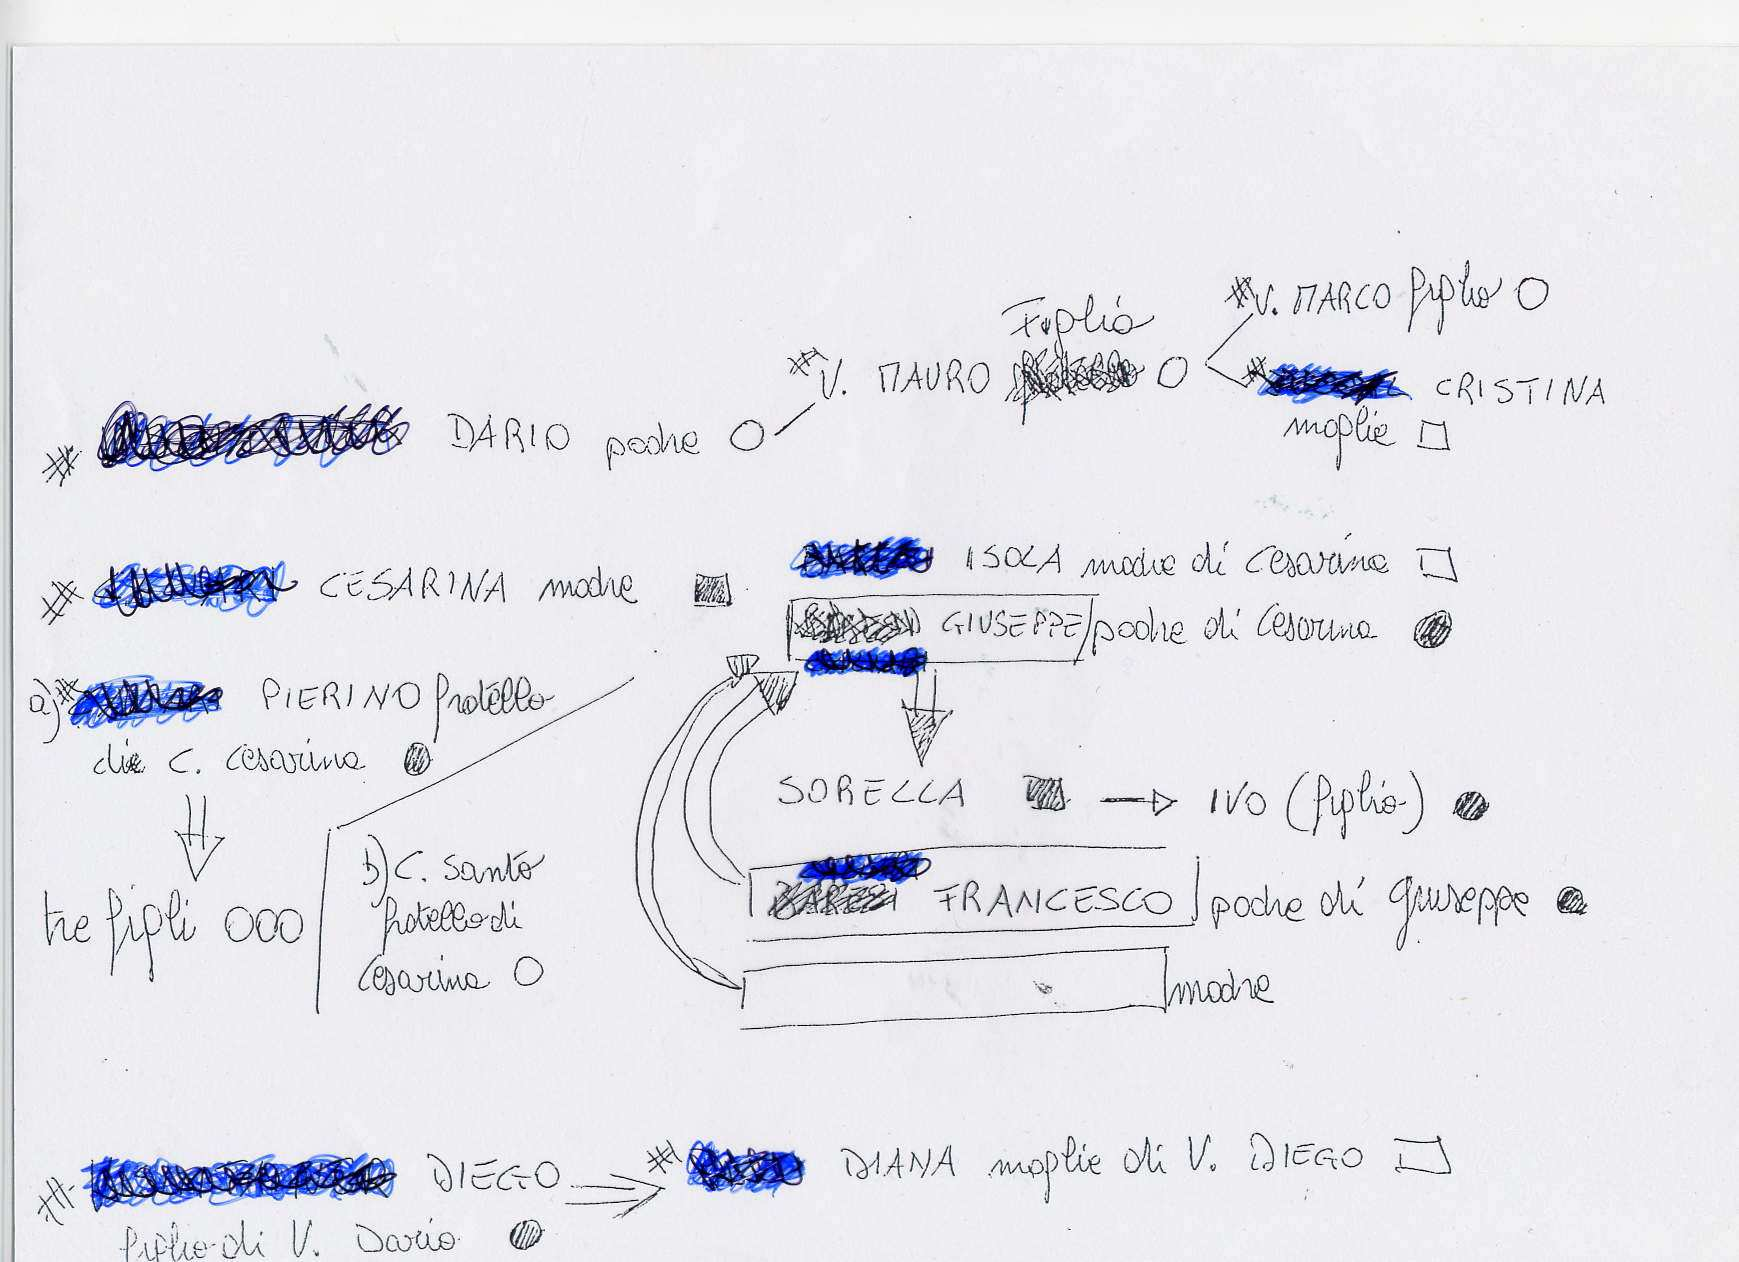 # V. MARCO figlio
Figlio
# V. MAURO
# CRISTINA
moglie
# DARIO padre
ISOLA madre di Cesarina
# CESARINA madre
GIUSEPPE padre di Cesarina
a) # PIERINO fratello
di C. Cesarina
SORELLA IVO (figlio)
b) C. Santo
fratello di
Cesarina
tre figli
FRANCESCO padre di Giuseppe
madre
# DIEGO # DIANA moglie di V. DIEGO
figlio di V. Dario